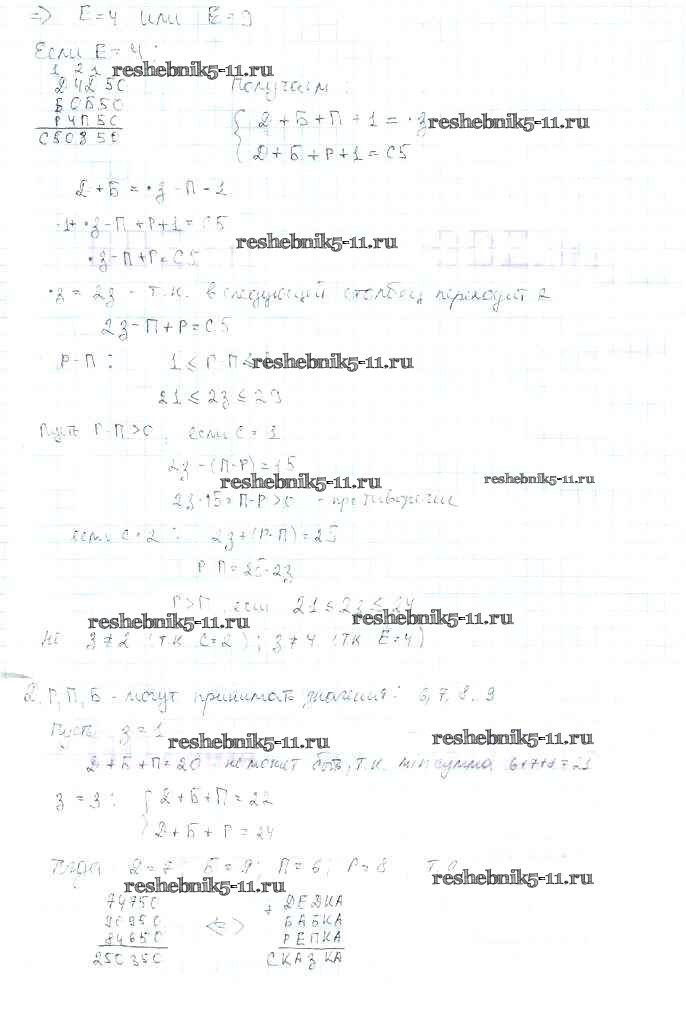 => Е=4 или Е=9
Если Е=4:
1 2 1 reshebnik5-11.ru
Д4Д50 Получаем:
Б0Б50
Р4П50
С50З50
Д+Б+П+1=·З reshebnik5-11.ru
Д+Б+Р+1=С5
Д+Б=·З-П-1
-1+·З-П+Р+1=С5
reshebnik5-11.ru
·З-П+Р=С5
·З=2З - т.к. в следующий столбец переходит 2
2З-П+Р=С5
Р-П: 1≤Р-П≤ reshebnik5-11.ru
21≤2З≤29
Пусть Р-П>0, если С=1
2З-(П-Р)=15
reshebnik5-11.ru reshebnik5-11.ru
2З-15=П-Р>0 - противоречие
если С=2: 2З+(Р-П)=25
Р-П=25-2З
Р>П, если 21≤2З≤24
reshebnik5-11.ru reshebnik5-11.ru
Но З≠2 (т.к. С=2); З≠4 (т.к. Е=4)
Д, Р, П, Б - могут принимать значения: 6, 7, 8, 9
Пусть З=1
reshebnik5-11.ru reshebnik5-11.ru
Д+Б+П=20 не может быть, т.к. min сумма 6+7+8=21
З=3: Д+Б+П=22
Д+Б+Р=24
Тогда Д=7; Б=9; П=6; Р=8
reshebnik5-11.ru reshebnik5-11.ru
74750 ДЕДКА
90950 <=> + БАБКА
84650 РЕПКА
250350 СКАЗКА